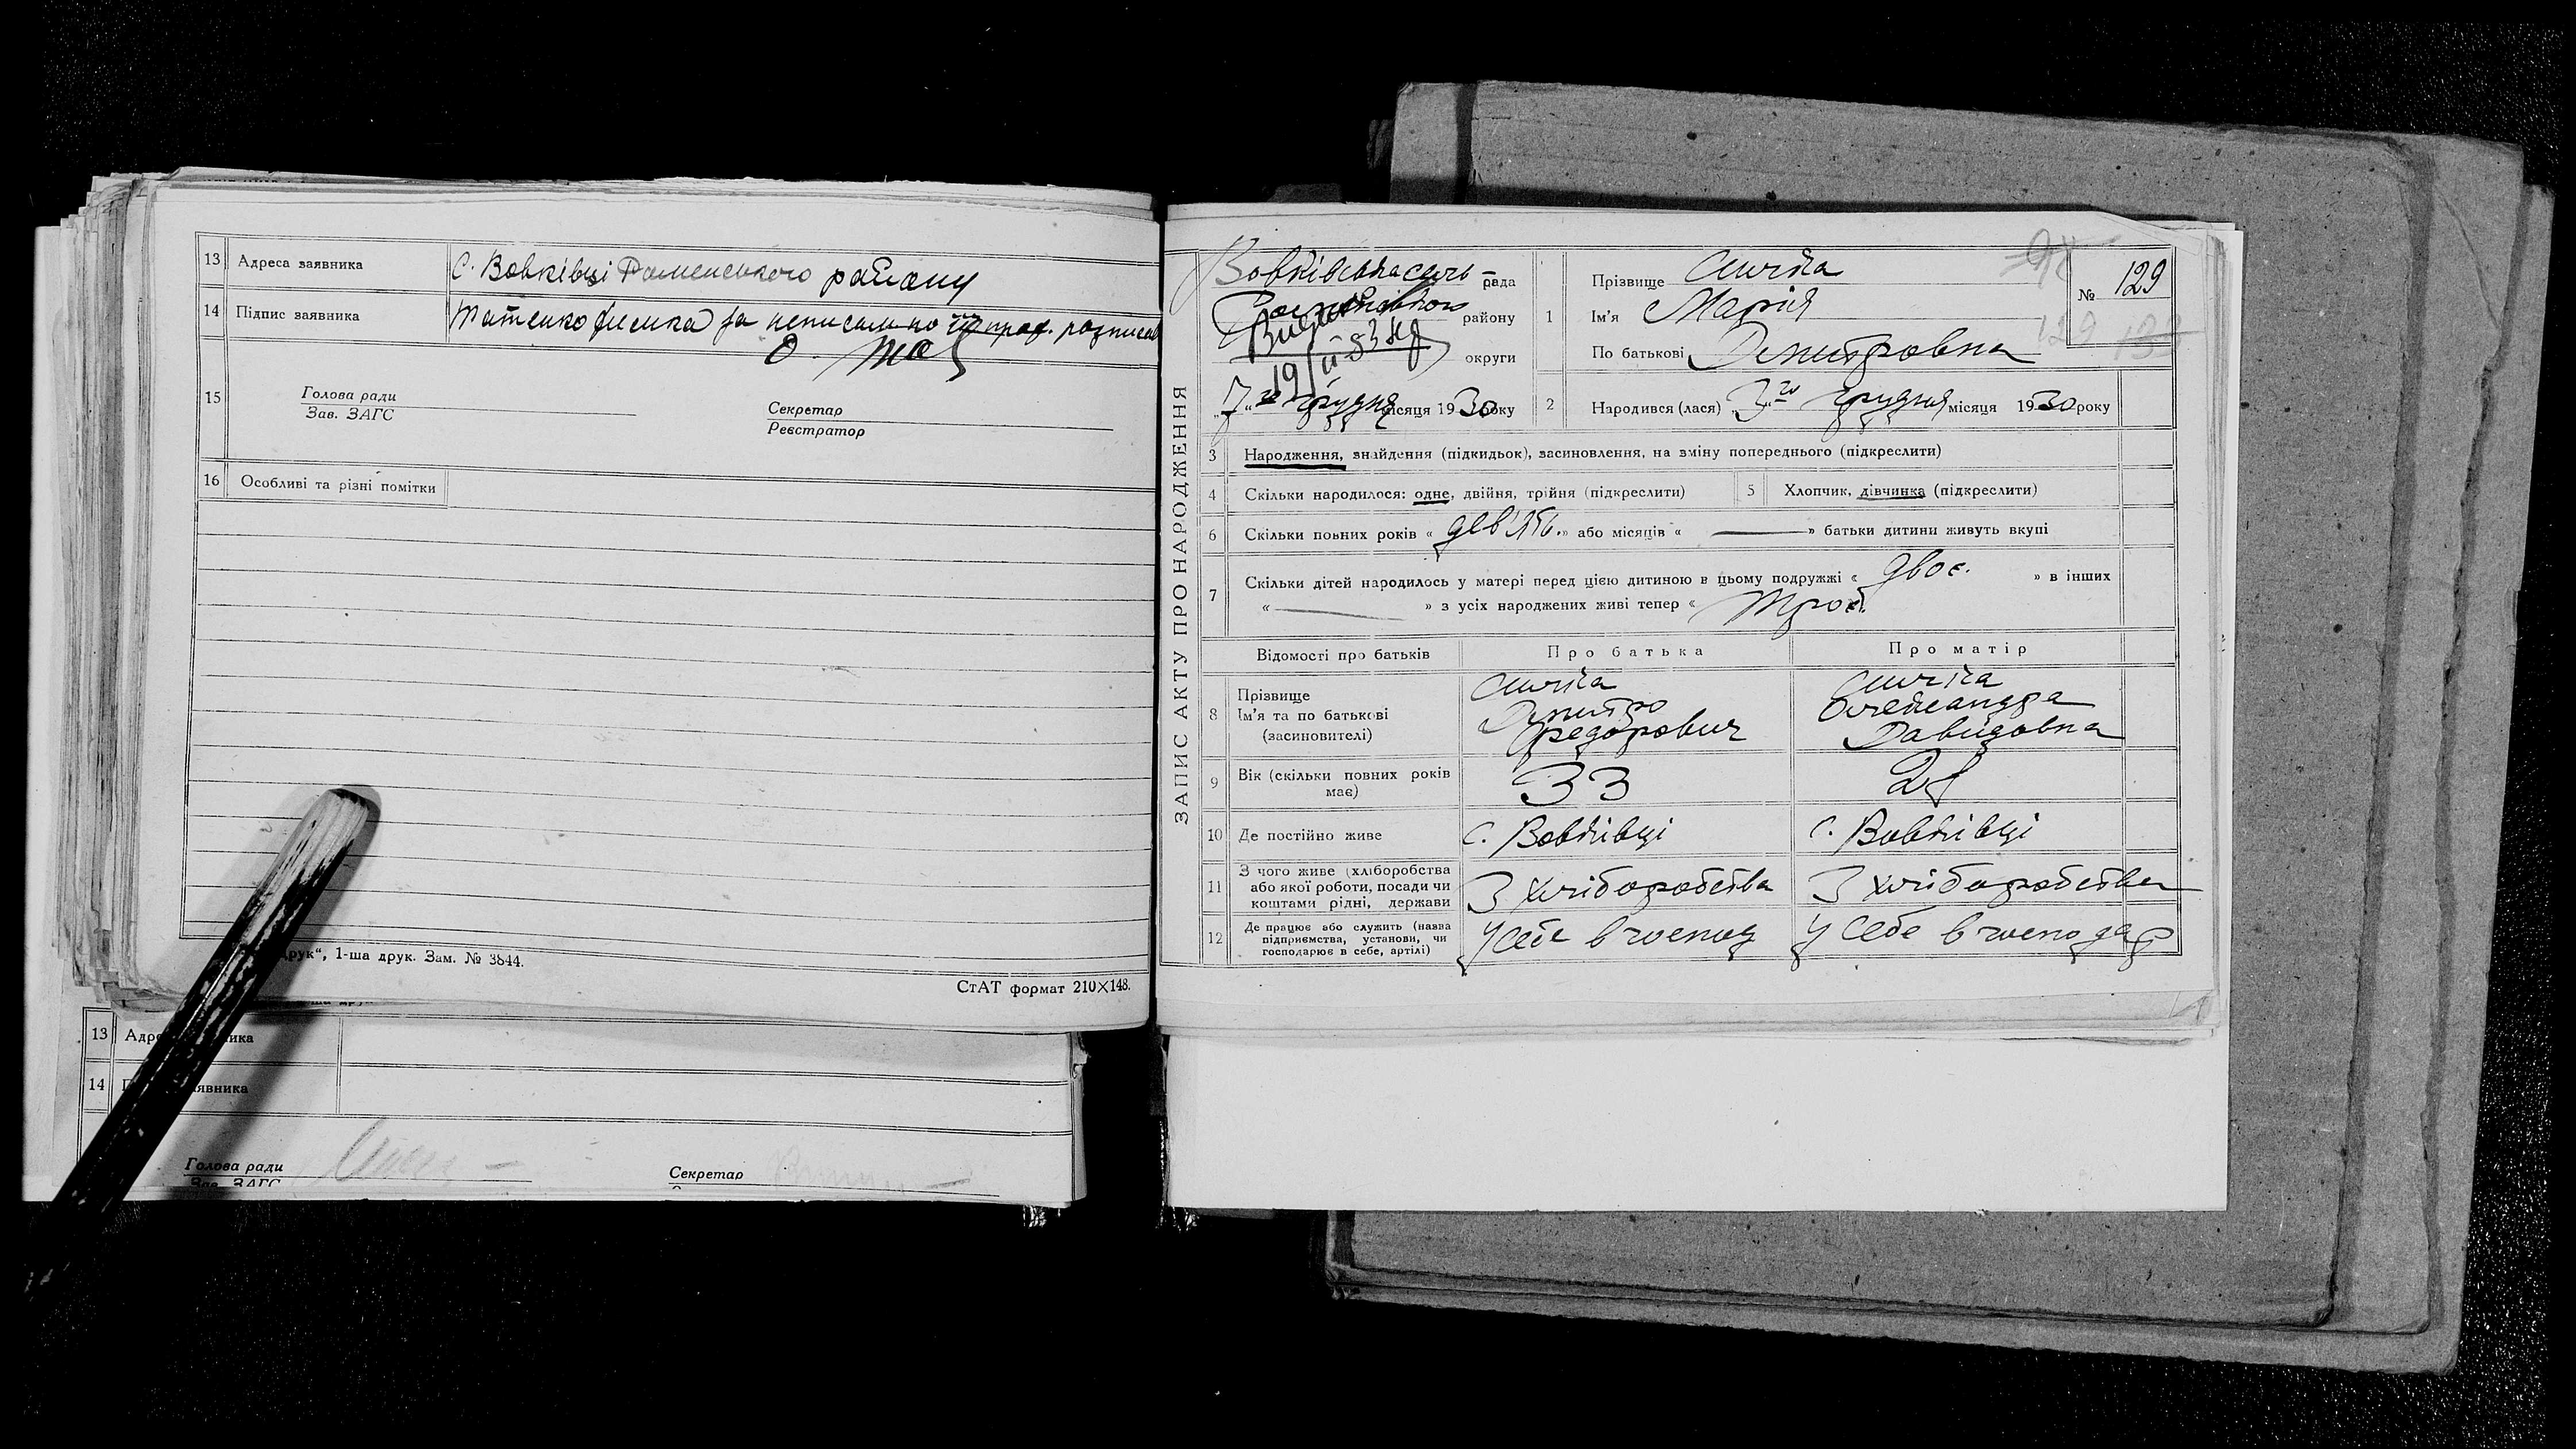 13 Адреса заявника с. Вовківці Роменського району
14 Підпис заявника
15 Голова ради
Зав. ЗАГС
Секретар
Реєстратор
16 Особливі та різні помітки
друк“, 1-ша друк. Зам. № 3844.
СтАТ формат 210×148.
13
14
Голова ради
Зав. ЗАГС
Секретар
ЗАПИС АКТУ ПРО НАРОДЖЕННЯ
рада
району
округи
„7“ грудня місяця 1930 року
№ 129
1 Прізвище
Ім'я Марія
По батькові Дмитровна
2 Народився (лася) „3“ го грудня місяця 1930 року
3 Народження, знайдення (підкидьок), засиновлення, на зміну попереднього (підкреслити)
4 Скільки народилося: одне, двійня, трійня (підкреслити)
5 Хлопчик, дівчинка (підкреслити)
6 Скільки повних років « дев'ять » або місяців « — » батьки дитини живуть вкупі
7 Скільки дітей народилось у матері перед цією дитиною в цьому подружжі « двоє. » в інших
« — » з усіх народжених живі тепер « троє.
Відомості про батьків Про батька Про матір
8 Прізвище
Ім'я та по батькові
(засиновителі)
Дмитро
Федорович
Олександра
Давидовна
9 Вік (скільки повних років має) 33
10 Де постійно живе с. Вовківці с. Вовківці
11 З чого живе (хліборобства або якої роботи, посади чи коштами рідні, держави З хліборобства З хліборобства
12 Де працює або служить (назва підприємства, установи, чи господарює в себе, артілі) у себе в господ у себе в господар